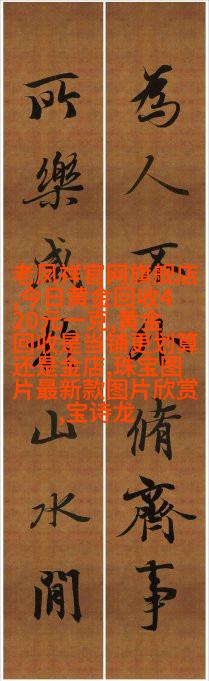 為人不外脩齊事
所樂山水間
老凤祥官网旗舰店
,今日黄金回收4
20元一克,黄金
回收是当铺更划算
还是金店,珠宝图
片最新款图片欣赏
,宝诗龙